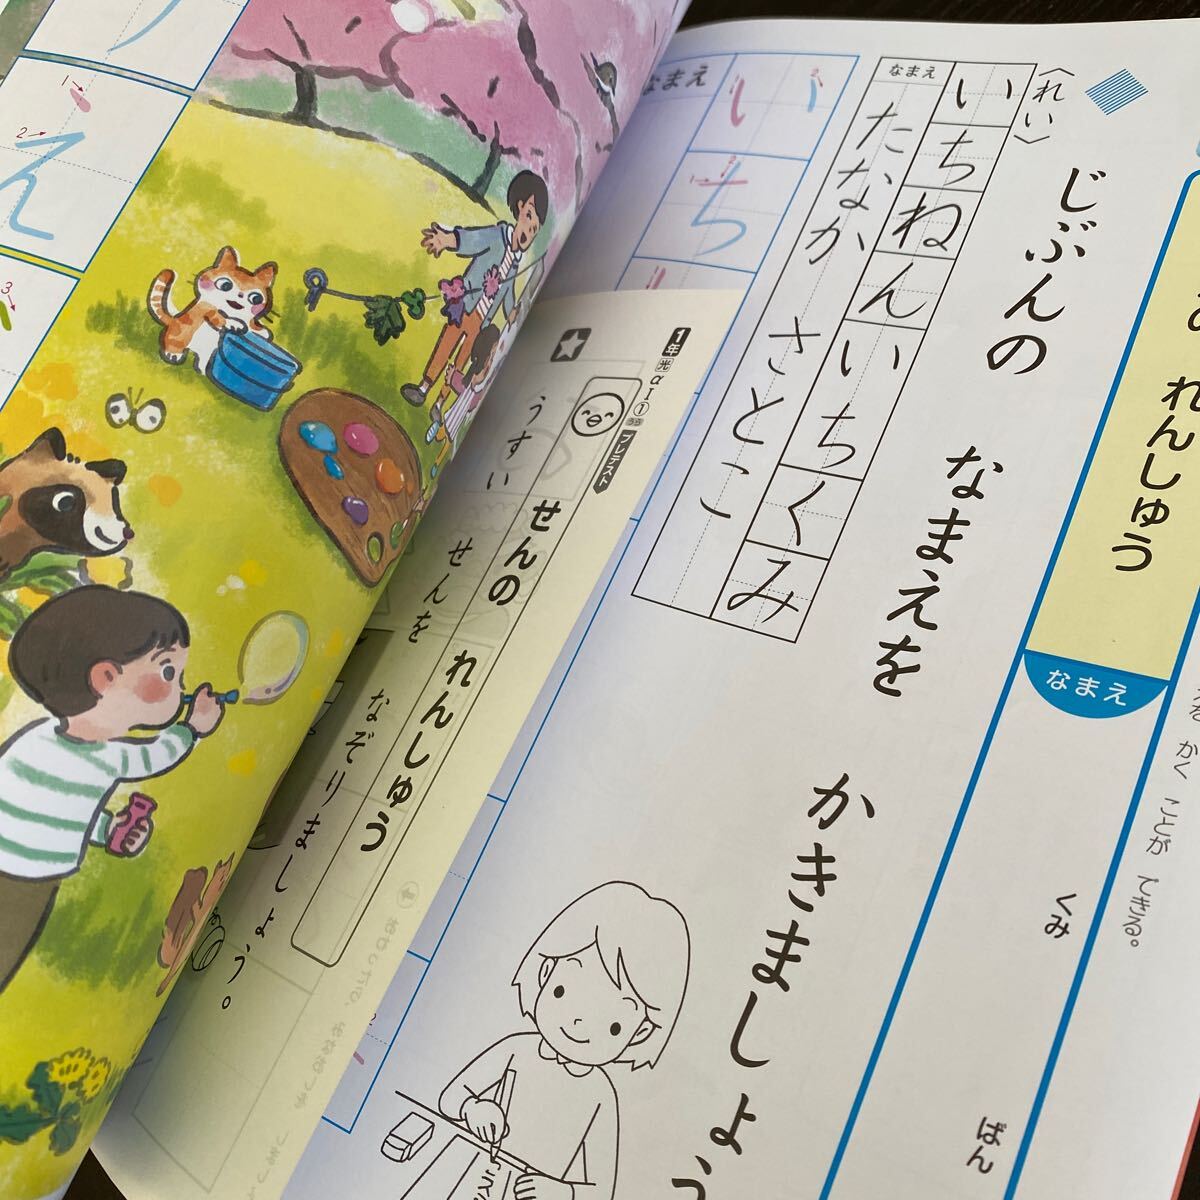 れんしゅう
なまえ
くみ
ばん
かく ことが できる。
じぶんの なまえを かきましょう
〈れい〉
いちねんいちくみ
なまえ
たなか さとこ
なまえ
い
ち
1年 光 α Ⅰ ① うら プレテスト
せんの れんしゅう
うすい せんを なぞりましょう。
え